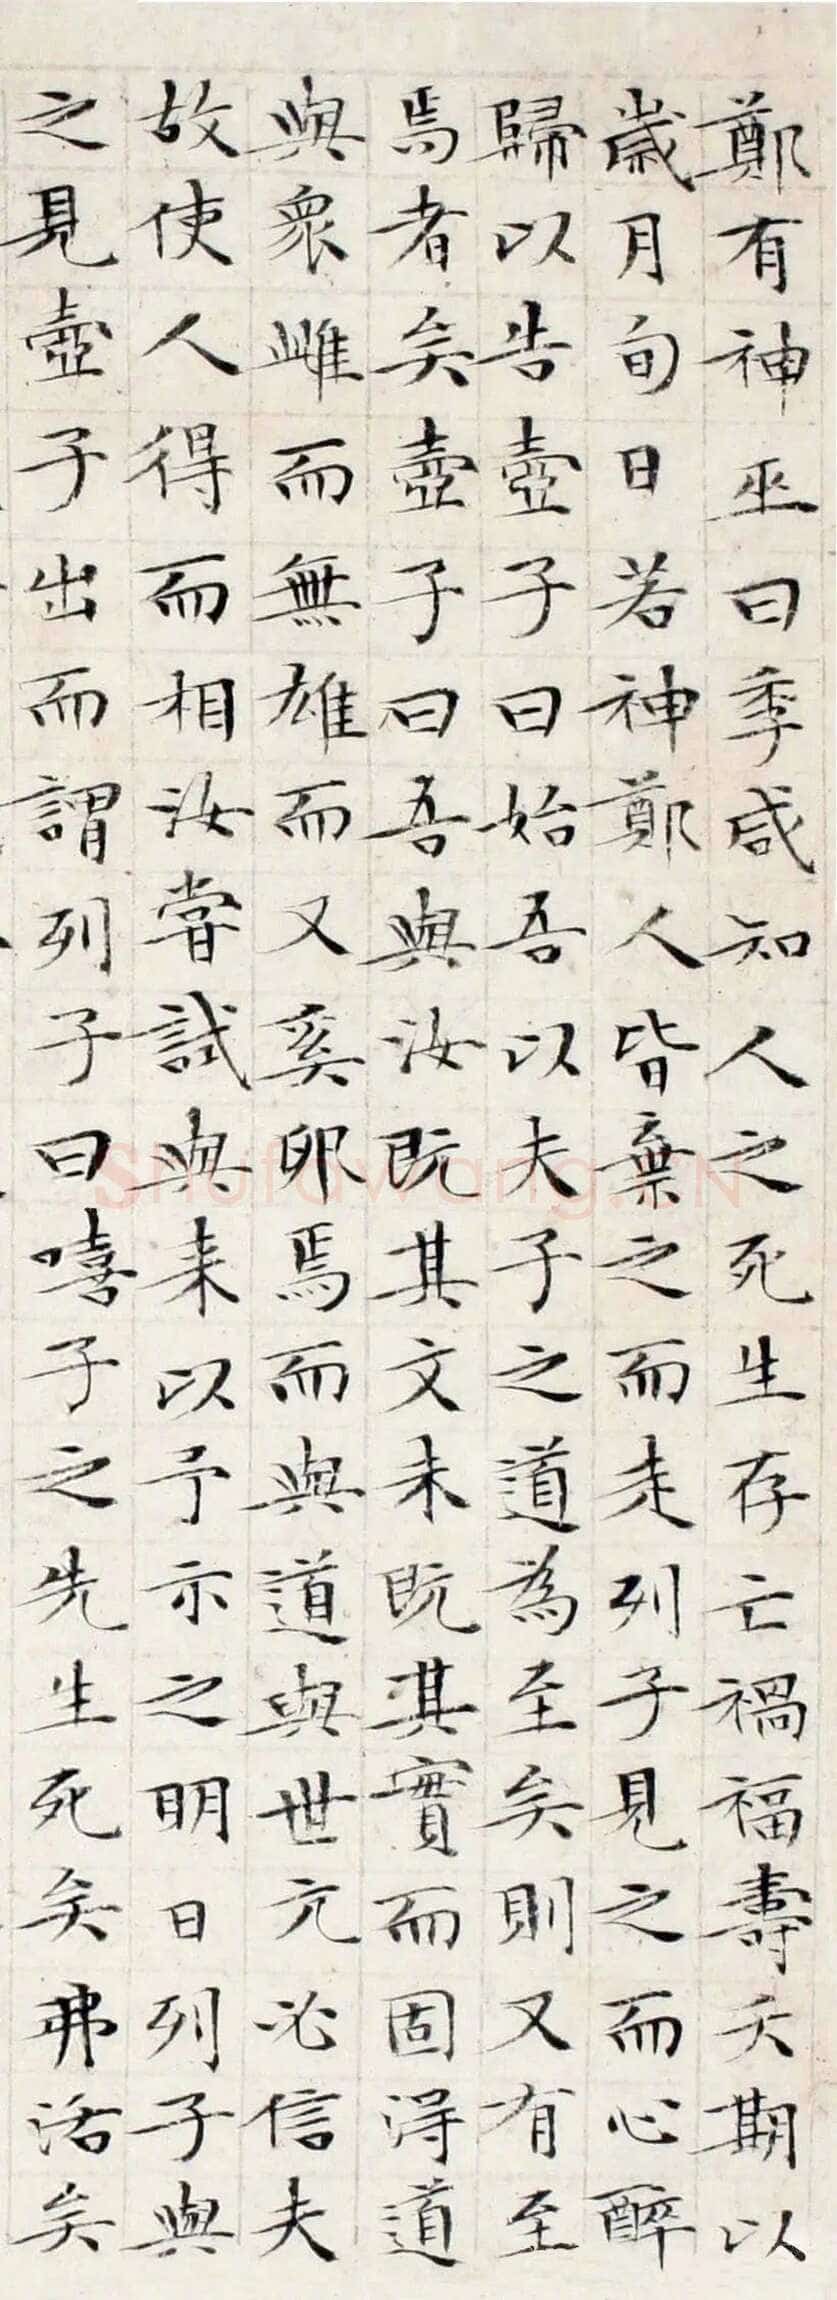 鄭有神巫曰季咸知人之死生存亡禍福壽夭期以
歲月旬日若神鄭人皆棄之而走列子見之而心醉
歸以告壺子曰始吾以夫子之道為至矣則又有至
焉者矣壺子曰吾與汝既其文未既其實而固得道
與衆雌而無雄而又奚卵焉而與道與世亢必信夫
故使人得而相汝嘗試與来以予示之明日列子與
之見壺子出而謂列子曰嘻子之先生死矣弗活矣
Shufawang.CN